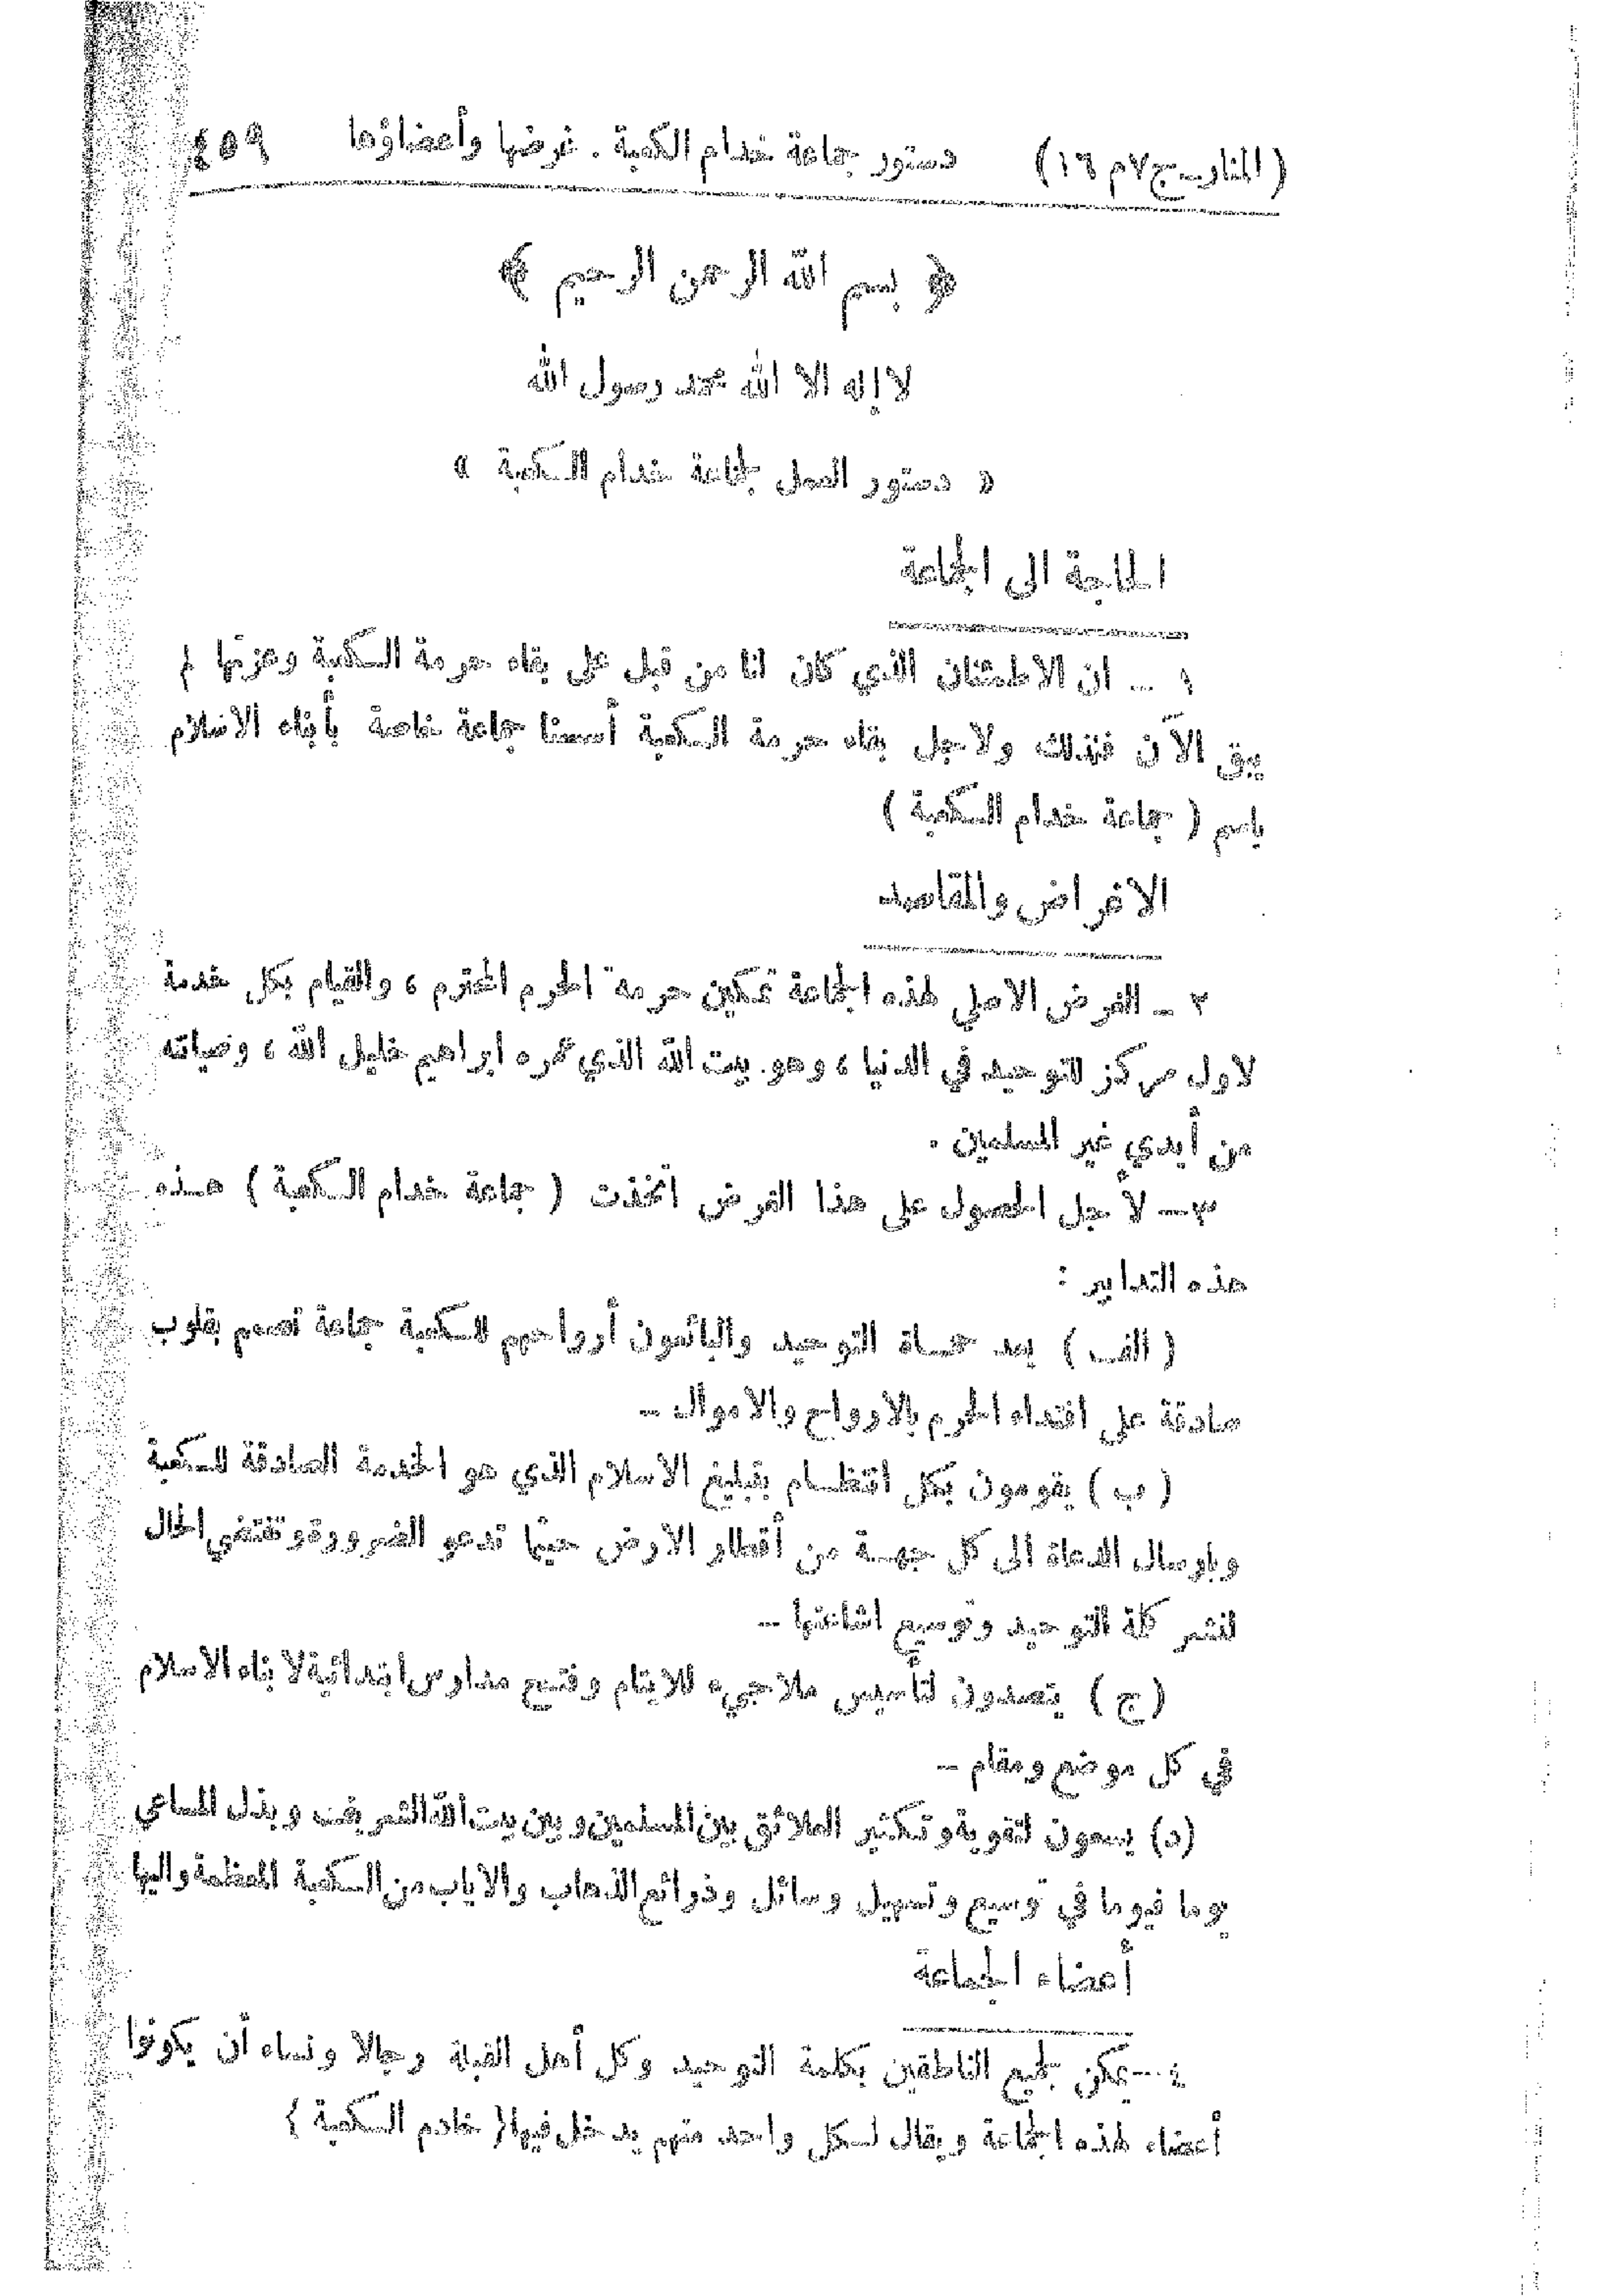 (المنار ـ ج ٧ م ١٦) دستور جماعة خدام الكعبة . غرضها وأعضاؤها ٤٥٩
﴿ بسم الله الرحمن الرحيم ﴾
لا إله الا الله محمد رسول الله
« دستور العمل لجماعة خدام الكعبة »
الحاجة الى الجماعة
١ – ان الاطمئنان الذي كان لنا من قبل على بقاء حرمة الكعبة وعزتها لم
يبق الآن فلذلك ولاجل بقاء حرمة الكعبة أسسنا جماعة خاصة بأبناء الاسلام
باسم ( جماعة خدام الكعبة )
الاغراض والمقاصد
٢ – الغرض الاصلي لهذه الجماعة تمكين حرمة الحرم المحترم ، والقيام بكل خدمة
لاول مركز للتوحيد في الدنيا ، وهو بيت الله الذي عمره ابراهيم خليل الله ، وصيانته
من أيدي غير المسلمين .
٣ – لأجل الحصول على هذا الغرض اتخذت ( جماعة خدام الكعبة ) هذه
هذه التدابير :
( الف ) يعد حماة التوحيد والبائعون أرواحهم للكعبة جماعة تصمم بقلوب
صادقة على افتداء الحرم بالارواح والاموال –
( ب ) يقومون بكل انتظام بتبليغ الاسلام الذي هو الخدمة الصادقة للكعبة
وبارسال الدعاة الى كل جهة من أقطار الارض حيثما تدعو الضرورة وتقتضي الحال
لنشر كلمة التوحيد وتوسيع اشاعتها –
( ج ) يتصدون لتأسيس ملاجيء للايتام وفتح مدارس ابتدائية لابناء الاسلام
في كل موضع ومقام –
(د) يسعون لتقوية وتكثير العلائق بين المسلمين وبين بيت الله الشريف وبذل المساعي
يوما فيوما في توسيع وتسهيل وسائل وذرائع الذهاب والاياب من الكعبة المعظمة واليها
أعضاء الجماعة
٤ – يمكن لجميع الناطقين بكلمة التوحيد وكل أهل القبلة رجالا ونساء أن يكونوا
أعضاء لهذه الجماعة ويقال لكل واحد منهم يدخل فيها ( خادم الكعبة )